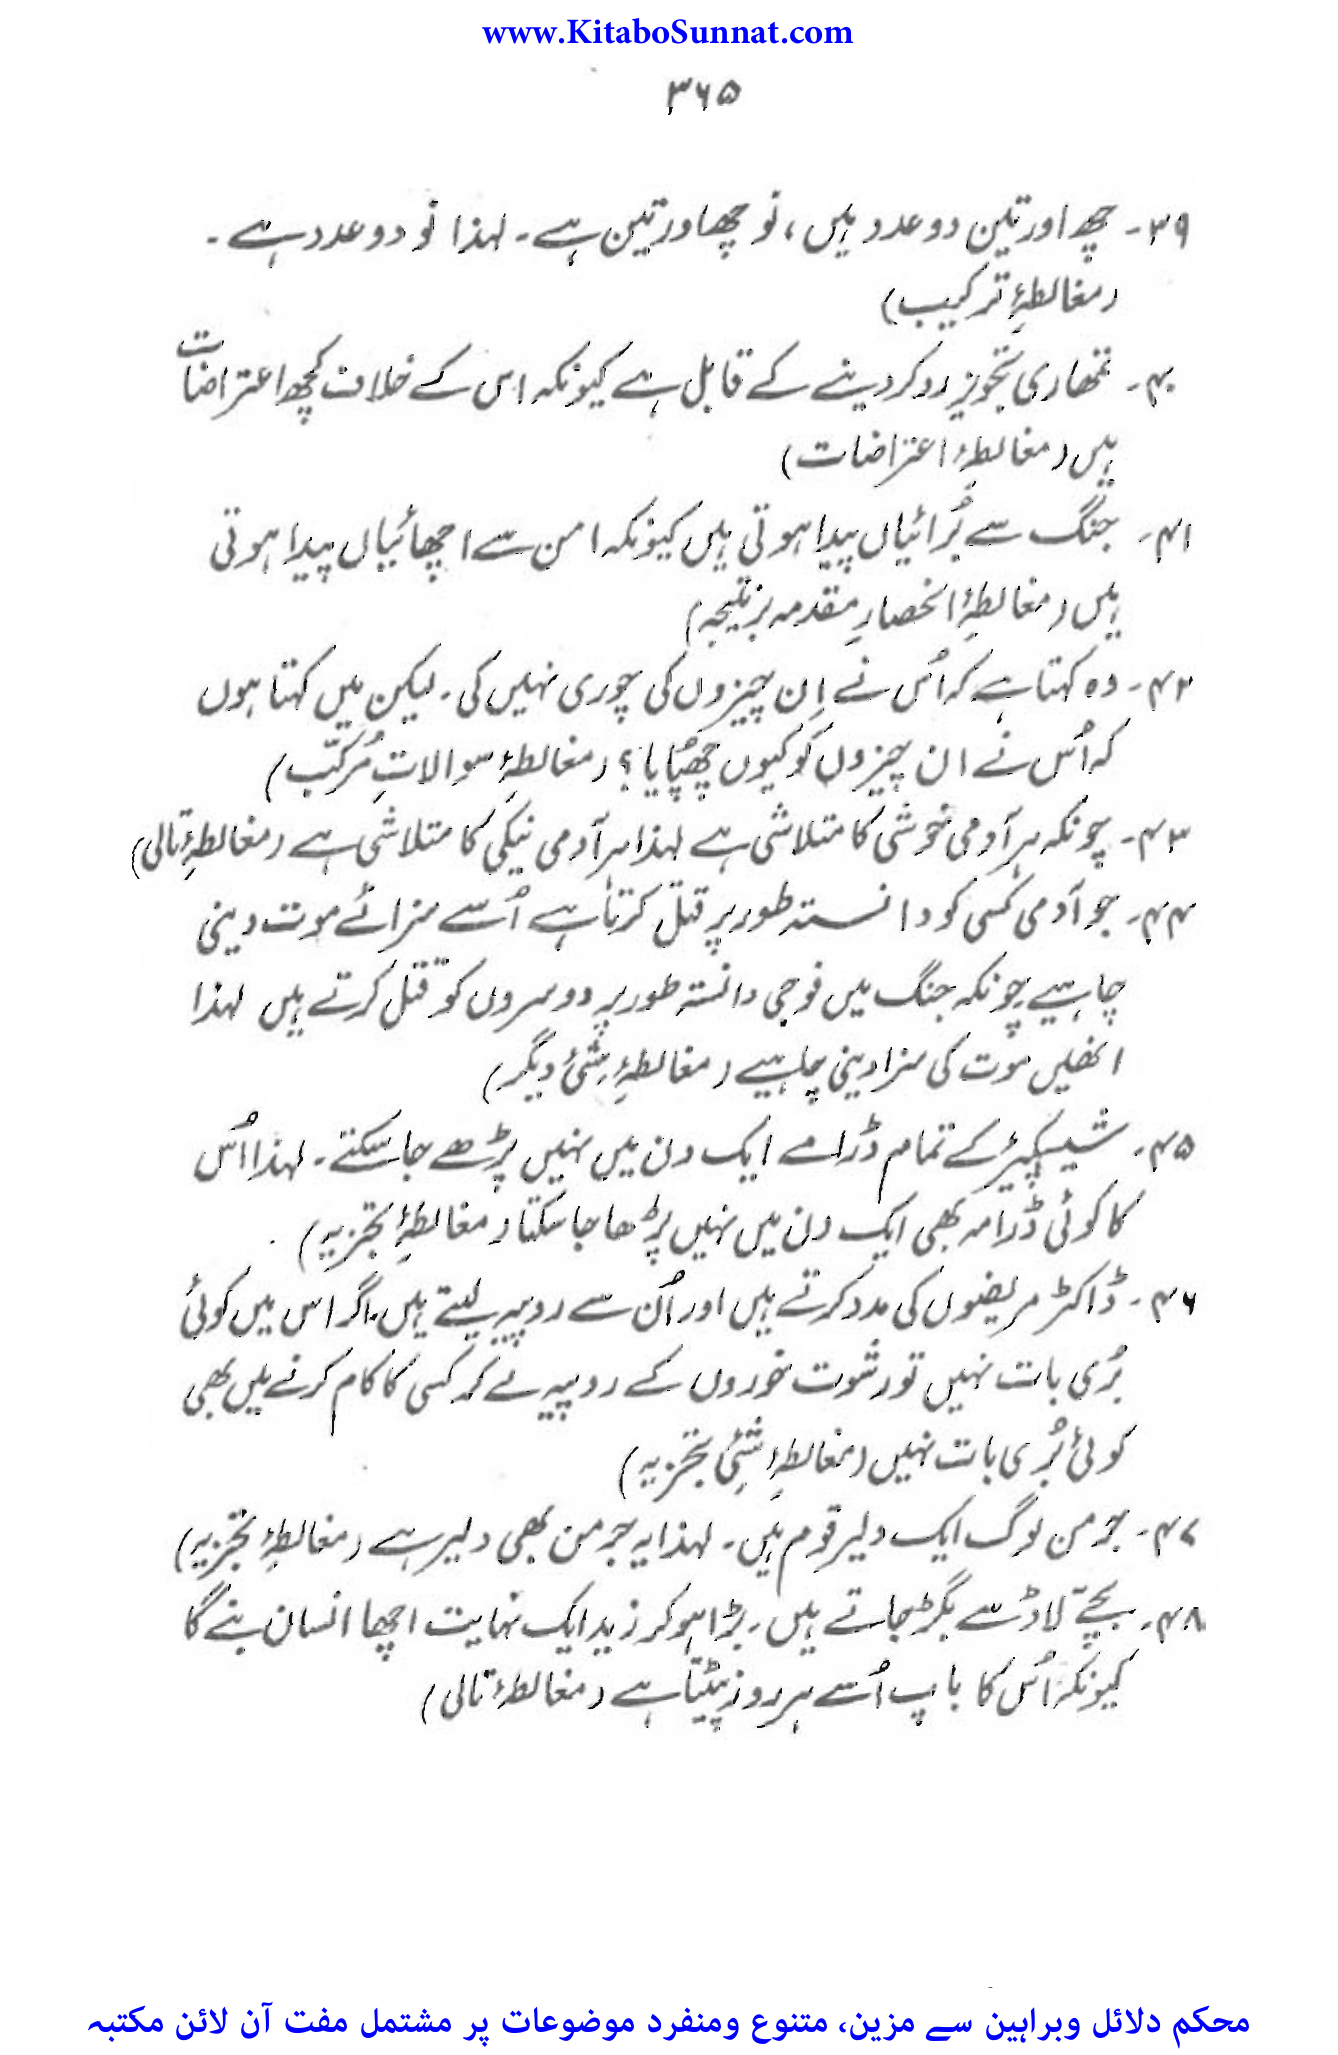 www.KitaboSunnat.com
۳۶۵
۳۹۔ چھ اور تین دو عدد ہیں، نو چھ اور تین ہے۔ لہذا نو دو عدد ہے۔
(مغالطۂ ترکیب)
۴۰۔ تمھاری تجویز رد کر دینے کے قابل ہے کیونکہ اس کے خلاف کچھ اعتراضات
ہیں (مغالطۂ اعتراضات)
۴۱۔ جنگ سے بُرائیاں پیدا ہوتی ہیں کیونکہ امن سے اچھائیاں پیدا ہوتی
ہیں (مغالطۂ انحصارِ مقدمہ بر نتیجہ)
۴۲۔ وہ کہتا ہے کہ اُس نے اِن چیزوں کی چوری نہیں کی۔ لیکن میں کہتا ہوں
کہ اُس نے ان چیزوں کو کیوں چھُپایا؟ (مغالطۂ سوالاتِ مُرکّب)
۴۳۔ چونکہ ہر آدمی خوشی کا متلاشی ہے لہذا ہر آدمی نیکی کا متلاشی ہے (مغالطۂ تالی)
۴۴۔ جو آدمی کسی کو دانستہ طور پر قتل کرتا ہے اُسے سزائے موت دینی
چاہیے چونکہ جنگ میں فوجی دانستہ طور پر دوسروں کو قتل کرتے ہیں لہذا
انھیں موت کی سزا دینی چاہیے (مغالطۂ شئ دیگر)
۴۵۔ شیکسپیئر کے تمام ڈرامے ایک دن میں نہیں پڑھے جا سکتے۔ لہذا اُس
کا کوئی ڈرامہ بھی ایک دن میں نہیں پڑھا جا سکتا (مغالطۂ تجزیہ)
۴۶۔ ڈاکٹر مریضوں کی مدد کرتے ہیں اور اُن سے روپیہ لیتے ہیں۔ اگر اس میں کوئی
بُری بات نہیں تو رشوت خوروں کے روپیہ لے کر کسی کا کام کرنے میں بھی
کوئی بُری بات نہیں (مغالطۂ شئِ تجزیہ)
۴۷۔ جرمن لوگ ایک دلیر قوم ہیں۔ لہذا یہ جرمن بھی دلیر ہے (مغالطۂ تجزیہ)
۴۸۔ بچے لاڈ سے بگڑ جاتے ہیں۔ بڑا ہو کر زید ایک نہایت اچھا انسان بنے گا
کیونکہ اُس کا باپ اُسے ہر روز پیٹتا ہے (مغالطۂ تالی)
محکم دلائل وبراہین سے مزین، متنوع ومنفرد موضوعات پر مشتمل مفت آن لائن مکتبہ